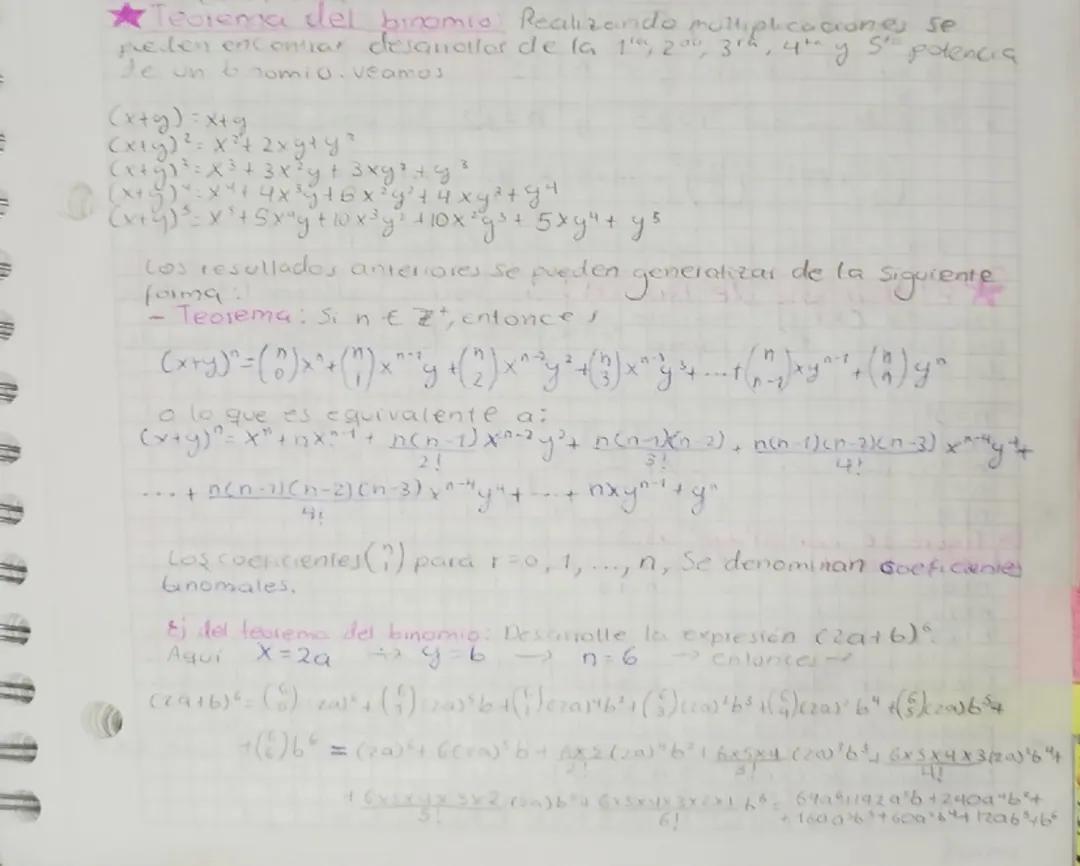 ★ Teorema del binomio: Realizando multiplicaciones se
pueden encontrar desarrollos de la 1ra, 2da, 3ra, 4ta y 5ta potencia
de un binomio. veamos
(x+y) = x+y
(x+y)² = x² + 2xy + y²
(x+y)³ = x³ + 3x²y + 3xy² + y³
(x+y)⁴ = x⁴ + 4x³y + 6x²y² + 4xy³ + y⁴
(x+y)⁵ = x⁵ + 5x⁴y + 10x³y² + 10x²y³ + 5xy⁴ + y⁵
Los resultados anteriores se pueden generalizar de la siguiente
forma:
- Teorema: Si n ∈ Z⁺, entonces
(x+y)ⁿ = (n 0)xⁿ + (n 1)xⁿ⁻¹y + (n 2)xⁿ⁻²y² + (n 3)xⁿ⁻³y³ + ... + (n n-1)xyⁿ⁻¹ + (n n)yⁿ
o lo que es equivalente a:
(x+y)ⁿ = xⁿ + nxⁿ⁻¹ + n(n-1)/2! xⁿ⁻²y² + n(n-1)(n-2)/3! + n(n-1)(n-2)(n-3)/4! xⁿ⁻⁴y⁴ +
... + n(n-1)(n-2)(n-3)/4! xⁿ⁻⁴y⁴ + ... + nxyⁿ⁻¹ + yⁿ
Los coeficientes (n r) para r=0, 1, ..., n, Se denominan coeficientes
binomales.
Ej del teorema del binomio: Desarrolle la expresión (2a+b)⁶.
Aqui x=2a → y=b → n=6 → entonces →
(2a+b)⁶ = (6 0)(2a)⁶ + (6 1)(2a)⁵b + (2a)⁴b² + (6 3)(2a)³b³ + (6 4)(2a)²b⁴ + (6 5)(2a)b⁵ +
+ (6 6)b⁶ = (2a)⁶ + 6(2a)⁵b + (2a)⁴b² + 6x5x4/3! (2a)³b³ + 6x5x4x3/4! (2a)²b⁴ +
+ 6x5x4x3x2/5! (2a)b⁵ + 6x5x4x3x2x1/6! b⁶ = 64a⁶ + 192a⁵b + 240a⁴b² +
+ 160a³b³ + 60a²b⁴ + 12ab⁵ + b⁶